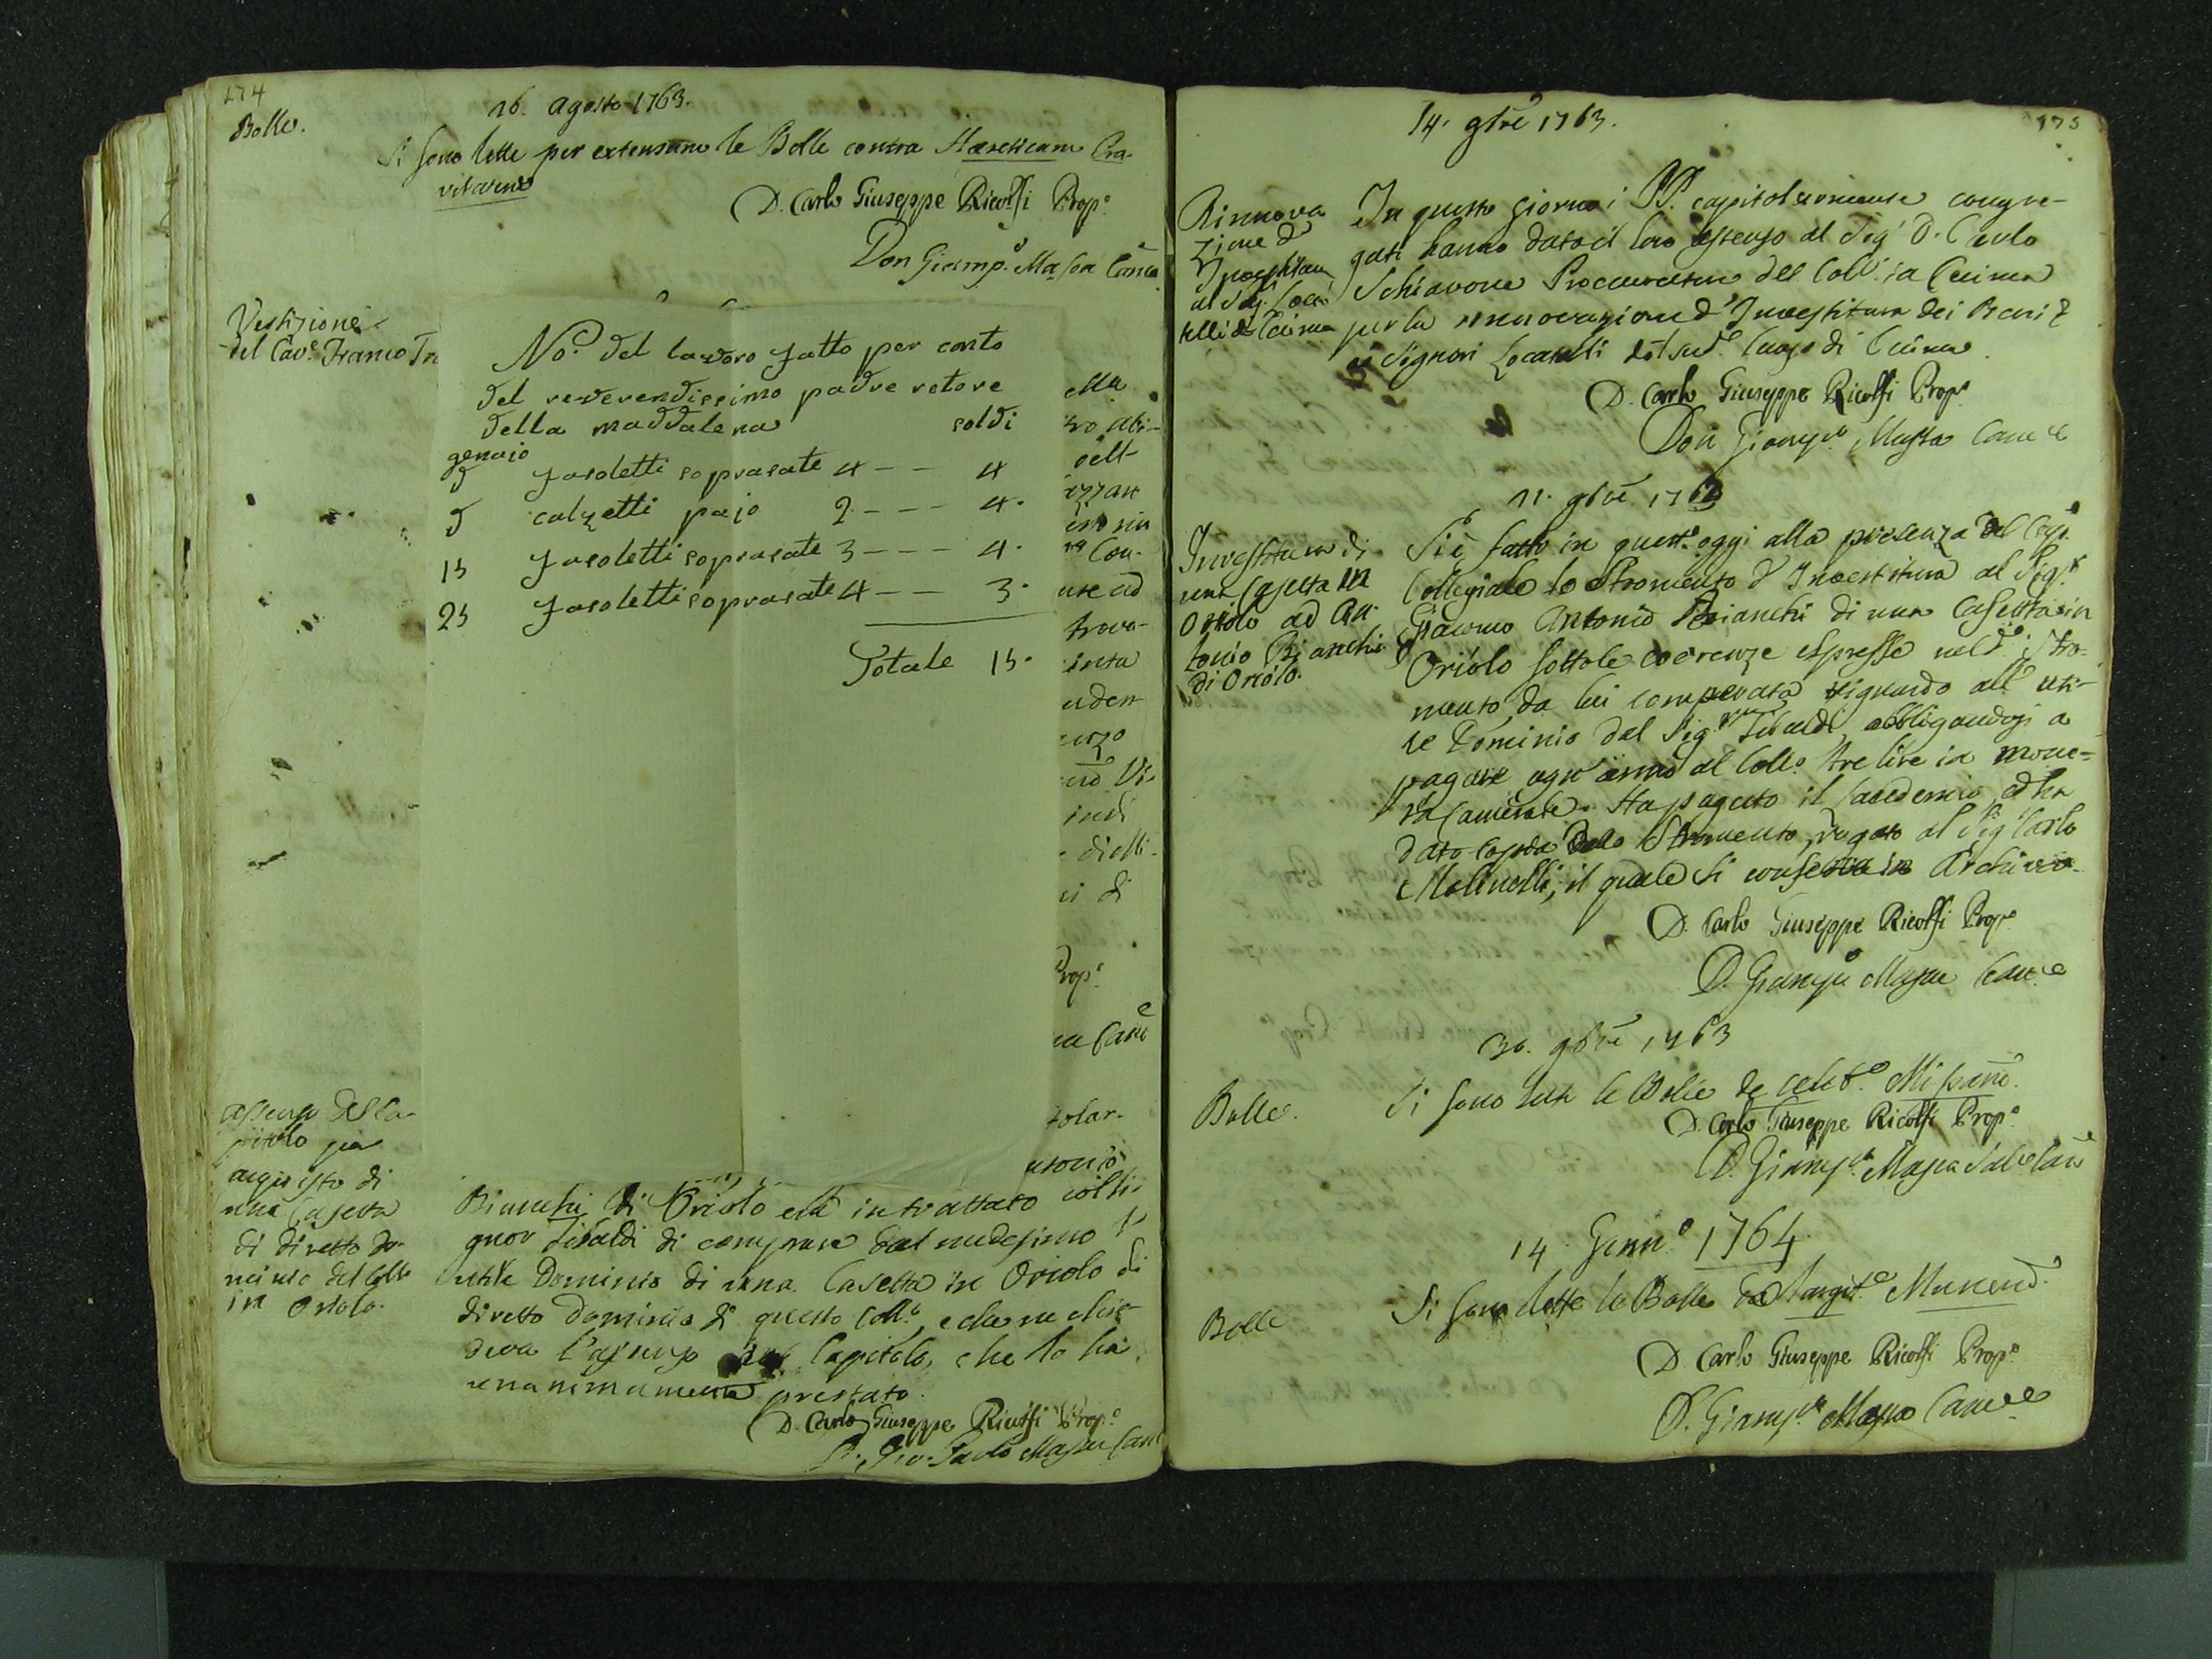 174
16. Agosto 1763.
Bolle.
Si sono lette per extensum le Bolle contra Hæreticam Pra-
vitatem
D. Carlo Giuseppe Ricolfi Prop.o
Don Giamp.o Massa Canc.e
Vestizione
del Cav.e Franco
No.a del lavoro fatto per conto
del reverendissimo padre retore
della maddalena soldi
genaio
5 fasoletti soprasate 4 - - 4
5 calzetti pajo 2 - - - 4.
15 fasoletti soprasate 3 - - - 4.
25 fasoletti soprasate 4 - - 3.
Totale 15.
ella
tro
dell-
izzare
Con-
ad
trova-
inta
uden
Vi-
indi
di
Prop.o
Canc
tolar-
Assenso del Ca-
pitolo per
acquisto di
una Casetta
di diretto do-
minio del Coll.o
in Oriolo.
antonio
Bianchi di Oriolo era in trattato col Si-
gnor Tibaldi di comprare dal medesimo l'
utile Dominio di una Casetta in Oriolo di
diretto Dominio di questo Coll.o, e che ne chie-
deva l'assenso dal Capitolo, che lo ha
unanimamente prestato.
D. Carlo Giuseppe Ricolfi Prop.o
D. Gio. Paolo Massa Canc
175
14. 9bre 1763.
Rinnova
zione d'
Investitura
al Sig. Loca
telli di Cecima
In questo giorno i PP. capitolarmente congre-
gati hanno dato il loro assenso al Sig.r D. Carlo
Schiavone Procuratore del Coll.o in Cecima
per la rinnovazione d'Investitura dei Beni
ai Signori Locatelli del sud.o luogo di Cecima.
D. Carlo Giuseppe Ricolfi Prop.o
Don Giamp.o Massa Canc.e
21. 9bre 1763
Investitura di
una Casetta in
Oriolo ad An
tonio Bianchi
di Oriolo.
Si è fatto in quest'oggi alla presenza del Cap.
Collegiale lo Stromento d'Investitura al Sig.r
Giacomo Antonio Bianchi di una Casetta in
Oriolo sotto le coerenze espresse nel d.o Stro-
mento, da lui comperata riguardo all'uti-
le Dominio dal Sig.r Tibaldi, obbligandosi a
pagare ogn'anno al Coll.o tre lire in mone-
ta Camerale. Ha pagato il laudemio, ed ha
dato copia dello Stromento rogato al Sig.r Carlo
Molinelli, il quale si conserva in Archivio.
D. Carlo Giuseppe Ricolfi Prop.o
D. Giamp.o Massa Canc.e
30. 9bre 1763
Bolle.
Si sono lette le Bolle de celeb.e Missarū.
D. Carlo Giuseppe Ricolfi Prop.o
D. Giamp.o Massa Canc
14. Genn.o 1764.
Bolle
Si sono lette le Bolle de largit.e Munerū.
D. Carlo Giuseppe Ricolfi Prop.o
D. Giamp.o Massa Canc.e